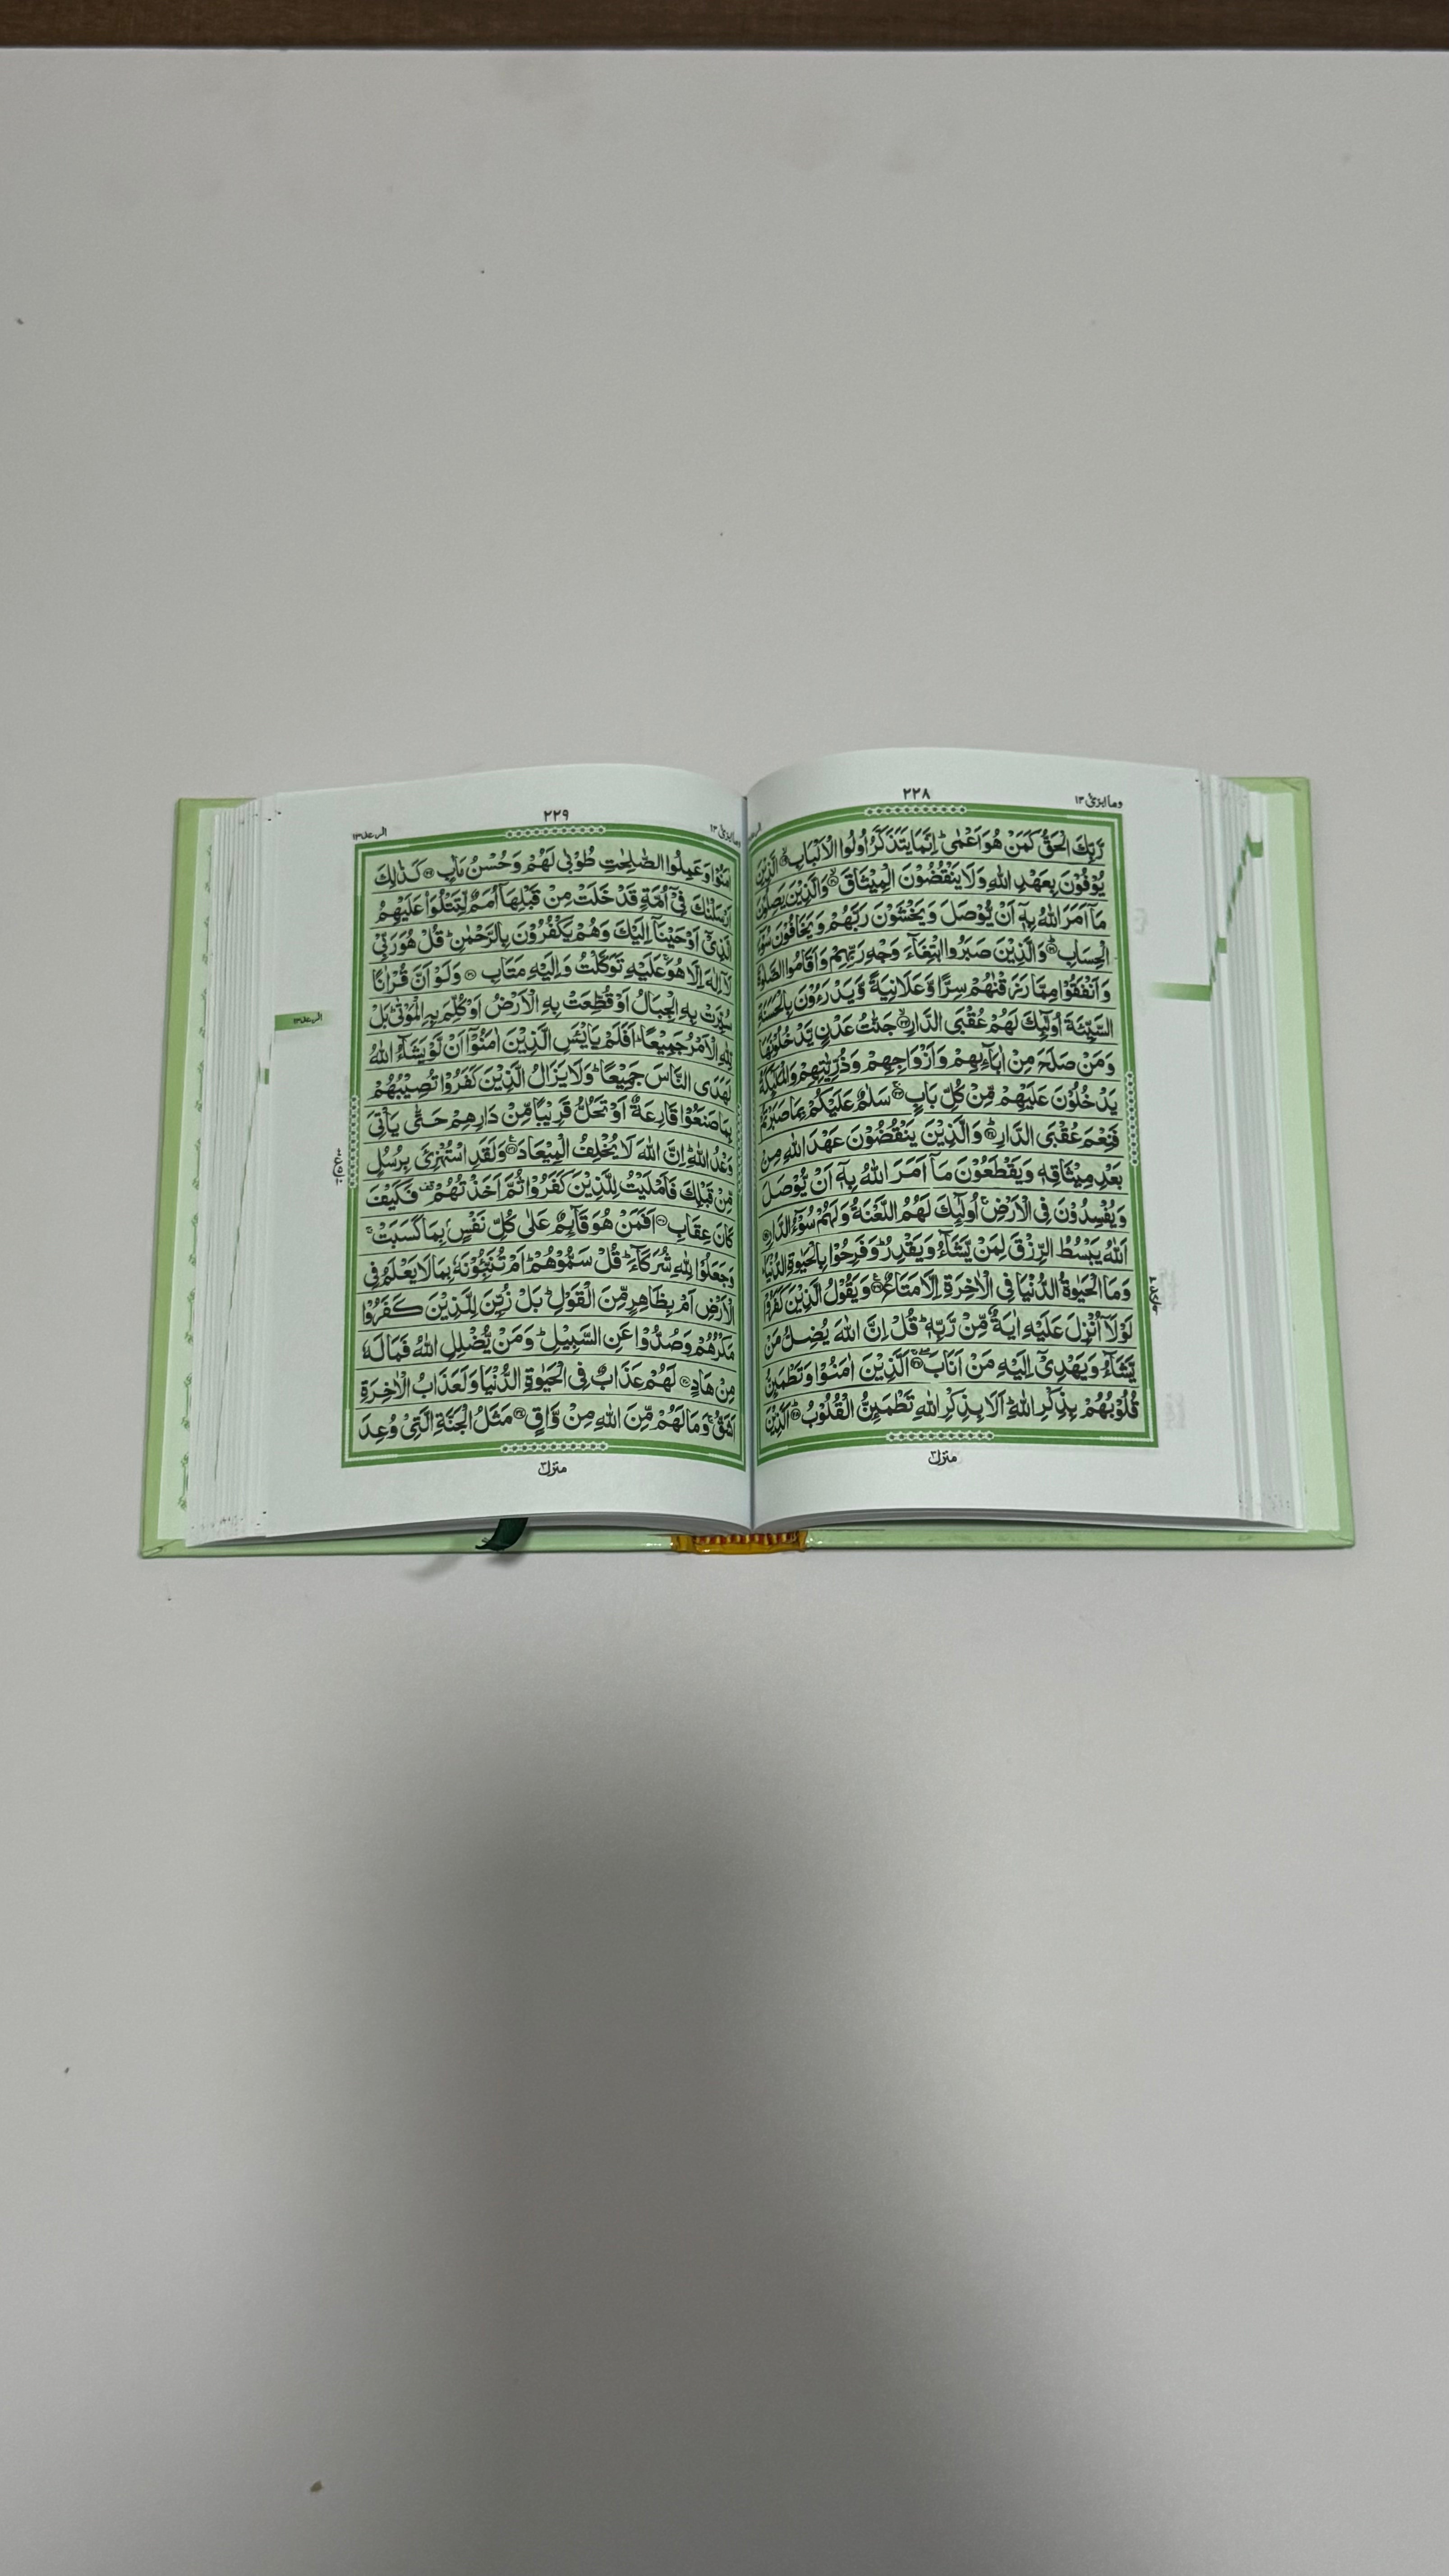 وما ابرئ ١٣
٢٢٨
رَّبِّكَ الْحَقُّ كَمَنْ هُوَ اَعْمٰىؕ اِنَّمَا يَتَذَكَّرُ اُولُوا الْاَلْبَابِۙ۱۹ الَّذِيْنَ
يُوْفُوْنَ بِعَهْدِ اللّٰهِ وَلَا يَنْقُضُوْنَ الْمِيْثَاقَۙ۲۰ وَالَّذِيْنَ يَصِلُوْنَ
مَاۤ اَمَرَ اللّٰهُ بِهٖۤ اَنْ يُّوْصَلَ وَيَخْشَوْنَ رَبَّهُمْ وَيَخَافُوْنَ سُوْٓءَ
الْحِسَابِؕ۲۱ وَالَّذِيْنَ صَبَرُوا ابْتِغَآءَ وَجْهِ رَبِّهِمْ وَاَقَامُوا الصَّلٰوةَ
وَاَنْفَقُوْا مِمَّا رَزَقْنٰهُمْ سِرًّا وَّعَلَانِيَةً وَّيَدْرَءُوْنَ بِالْحَسَنَةِ
السَّيِّئَةَ اُولٰٓئِكَ لَهُمْ عُقْبَى الدَّارِۙ۲۲ جَنّٰتُ عَدْنٍ يَّدْخُلُوْنَهَا
وَمَنْ صَلَحَ مِنْ اٰبَآئِهِمْ وَاَزْوَاجِهِمْ وَذُرِّيّٰتِهِمْ وَالْمَلٰٓئِكَةُ
يَدْخُلُوْنَ عَلَيْهِمْ مِّنْ كُلِّ بَابٍۚ۲۳ سَلٰمٌ عَلَيْكُمْ بِمَا صَبَرْتُمْ
فَنِعْمَ عُقْبَى الدَّارِؕ۲۴ وَالَّذِيْنَ يَنْقُضُوْنَ عَهْدَ اللّٰهِ مِنْۢ
بَعْدِ مِيْثَاقِهٖ وَيَقْطَعُوْنَ مَاۤ اَمَرَ اللّٰهُ بِهٖۤ اَنْ يُّوْصَلَ
وَيُفْسِدُوْنَ فِى الْاَرْضِۙ اُولٰٓئِكَ لَهُمُ اللَّعْنَةُ وَلَهُمْ سُوْٓءُ الدَّارِ۲۵
اَللّٰهُ يَبْسُطُ الرِّزْقَ لِمَنْ يَّشَآءُ وَيَقْدِرُؕ وَفَرِحُوْا بِالْحَيٰوةِ الدُّنْيَاؕ
وَمَا الْحَيٰوةُ الدُّنْيَا فِى الْاٰخِرَةِ اِلَّا مَتَاعٌ۲۶ وَيَقُوْلُ الَّذِيْنَ كَفَرُوْا
لَوْلَاۤ اُنْزِلَ عَلَيْهِ اٰيَةٌ مِّنْ رَّبِّهٖؕ قُلْ اِنَّ اللّٰهَ يُضِلُّ مَنْ
يَّشَآءُ وَيَهْدِىْۤ اِلَيْهِ مَنْ اَنَابَۖۚ۲۷ اَلَّذِيْنَ اٰمَنُوْا وَتَطْمَئِنُّ
قُلُوْبُهُمْ بِذِكْرِ اللّٰهِؕ اَلَا بِذِكْرِ اللّٰهِ تَطْمَئِنُّ الْقُلُوْبُؕ۲۸ اَلَّذِيْنَ
منزل ٣
وما ابرئ ١٣
٢٢٩
الرعد ١٣
اٰمَنُوْا وَعَمِلُوا الصّٰلِحٰتِ طُوْبٰى لَهُمْ وَحُسْنُ مَاٰبٍ۲۹ كَذٰلِكَ
اَرْسَلْنٰكَ فِىْۤ اُمَّةٍ قَدْ خَلَتْ مِنْ قَبْلِهَاۤ اُمَمٌ لِّتَتْلُوَا۟ عَلَيْهِمُ
الَّذِىْۤ اَوْحَيْنَاۤ اِلَيْكَ وَهُمْ يَكْفُرُوْنَ بِالرَّحْمٰنِؕ قُلْ هُوَ رَبِّىْ
لَاۤ اِلٰهَ اِلَّا هُوَۚ عَلَيْهِ تَوَكَّلْتُ وَاِلَيْهِ مَتَابِ۳۰ وَلَوْ اَنَّ قُرْاٰنًا
سُيِّرَتْ بِهِ الْجِبَالُ اَوْ قُطِّعَتْ بِهِ الْاَرْضُ اَوْ كُلِّمَ بِهِ الْمَوْتٰىؕ بَلْ
لِّلّٰهِ الْاَمْرُ جَمِيْعًاؕ اَفَلَمْ يَايْـَٔسِ الَّذِيْنَ اٰمَنُوْۤا اَنْ لَّوْ يَشَآءُ اللّٰهُ
لَهَدَى النَّاسَ جَمِيْعًاؕ وَلَا يَزَالُ الَّذِيْنَ كَفَرُوْا تُصِيْبُهُمْ
بِمَا صَنَعُوْا قَارِعَةٌ اَوْ تَحُلُّ قَرِيْبًا مِّنْ دَارِهِمْ حَتّٰى يَاْتِىَ
وَعْدُ اللّٰهِؕ اِنَّ اللّٰهَ لَا يُخْلِفُ الْمِيْعَادَ۳۱ وَلَقَدِ اسْتُهْزِئَ بِرُسُلٍ
مِّنْ قَبْلِكَ فَاَمْلَيْتُ لِلَّذِيْنَ كَفَرُوْا ثُمَّ اَخَذْتُهُمْ فَكَيْفَ
كَانَ عِقَابِ۳۲ اَفَمَنْ هُوَ قَآئِمٌ عَلٰى كُلِّ نَفْسٍۢ بِمَا كَسَبَتْۚ
وَجَعَلُوْا لِلّٰهِ شُرَكَآءَؕ قُلْ سَمُّوْهُمْؕ اَمْ تُنَبِّئُوْنَهٗ بِمَا لَا يَعْلَمُ فِى
الْاَرْضِ اَمْ بِظَاهِرٍ مِّنَ الْقَوْلِؕ بَلْ زُيِّنَ لِلَّذِيْنَ كَفَرُوْا
مَكْرُهُمْ وَصُدُّوْا عَنِ السَّبِيْلِؕ وَمَنْ يُّضْلِلِ اللّٰهُ فَمَا لَهٗ
مِنْ هَادٍ۳۳ لَهُمْ عَذَابٌ فِى الْحَيٰوةِ الدُّنْيَا وَلَعَذَابُ الْاٰخِرَةِ
اَشَقُّۚ وَمَا لَهُمْ مِّنَ اللّٰهِ مِنْ وَّاقٍ۳۴ مَثَلُ الْجَنَّةِ الَّتِىْ وُعِدَ
منزل ٣
الرعد ١٣